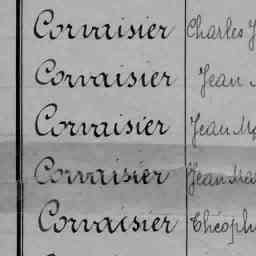 Corvaisier Charles
Corvaisier Jean
Corvaisier Jean
Corvaisier Jean
Corvaisier